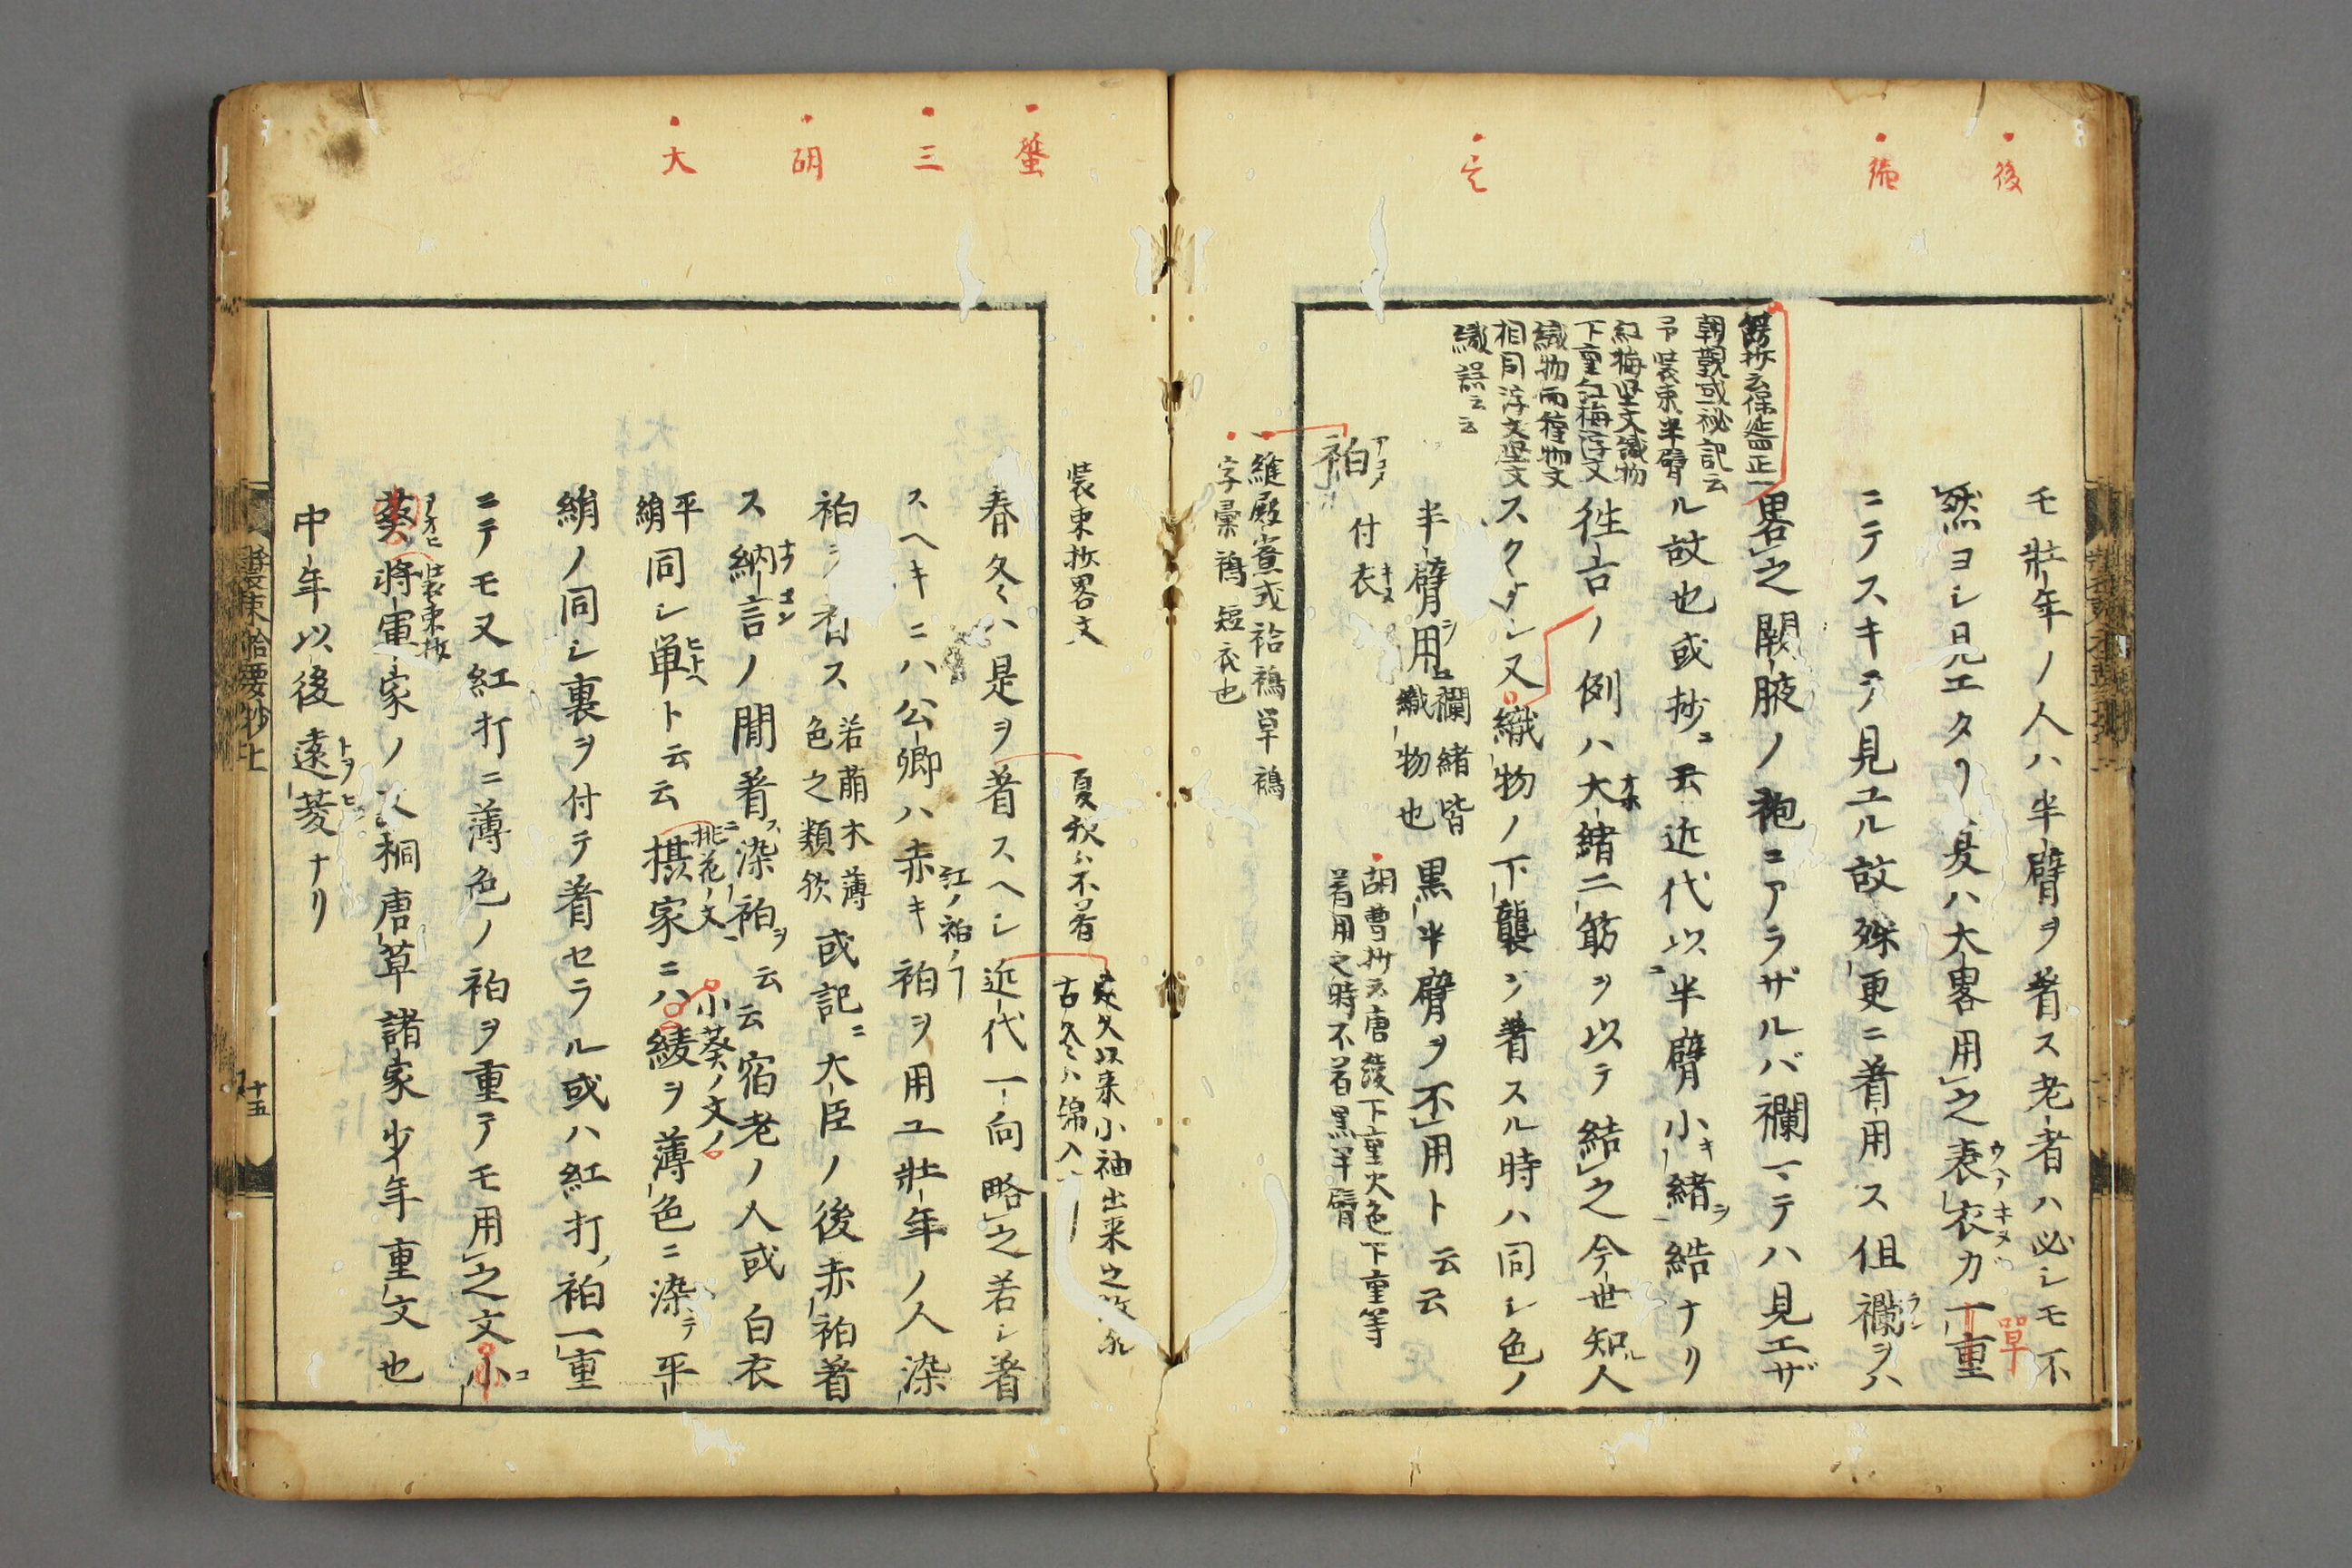 後
定
モ壯年ノ人ハ半臂ヲ着ス老者ハ必シモ不
然ヨシ見エタリ夏ハ大畧用之表衣カ一重
ウヘノキヌ
單
ニテスキテ見ユル故殊更ニ着用ス但襴ヲハ
ラン
畧之闕腋ノ袍ニアラザルバ襴マテハ見エザ
ル故也或抄ニ云近代以半臂小緒ヲ結ナリ
徃古ノ例ハ大緒二筋ヲ以テ結之今世知人
スクナシ又織物ノ下襲ヲ着スル時ハ同シ色ノ
半臂用
襴緒皆
織物也
黒半臂ヲ不用ト云云
朝覲或秘記云
装束半臂
紅梅堅文織物
下重紅梅浮文
織物而織物文
相同浮文堅文
織誤云云
胡曹抄云唐綾下重火色下重等
着用之時不着黒半臂
衵
アコメ
付衣
字彙褐短衣也
蛬
三
胡
大
装束抄畧文
夏秋ハ不着
以来小袖出来之故
古冬ハ綿入
春冬ハ是ヲ着スヘシ近代一向略之若シ着
スヘキニハ公卿ハ赤キ衵ヲ用ユ壯年ノ人染
紅ノ衵ノ
衵ヲ着ス
若萠木薄
色之類歟
或記ニ大臣ノ後赤衵着
ス納言ノ間着染衵ヲ云云宿老ノ人或白衣
平
絹
同シ単ト云云摂家ニハ綾ヲ薄色ニ染テ平
桃花ノ文
小葵ノ文ノ
絹ノ同シ裏ヲ付テ着セラル或ハ紅打衵一重
ニテモ又紅打ニ薄色ノ衵ヲ重テモ用之文小
葵將軍家ノ文桐唐草諸家少年重文也
アオヒ
装束抄
中年以後遠菱ナリ
トヲヒシ
装束拾要抄上
十五